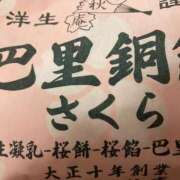 洋生
秋
庵
謹
巴里銅
さくら
生凝乳-桜餅-桜餡-巴里
大正十年創業